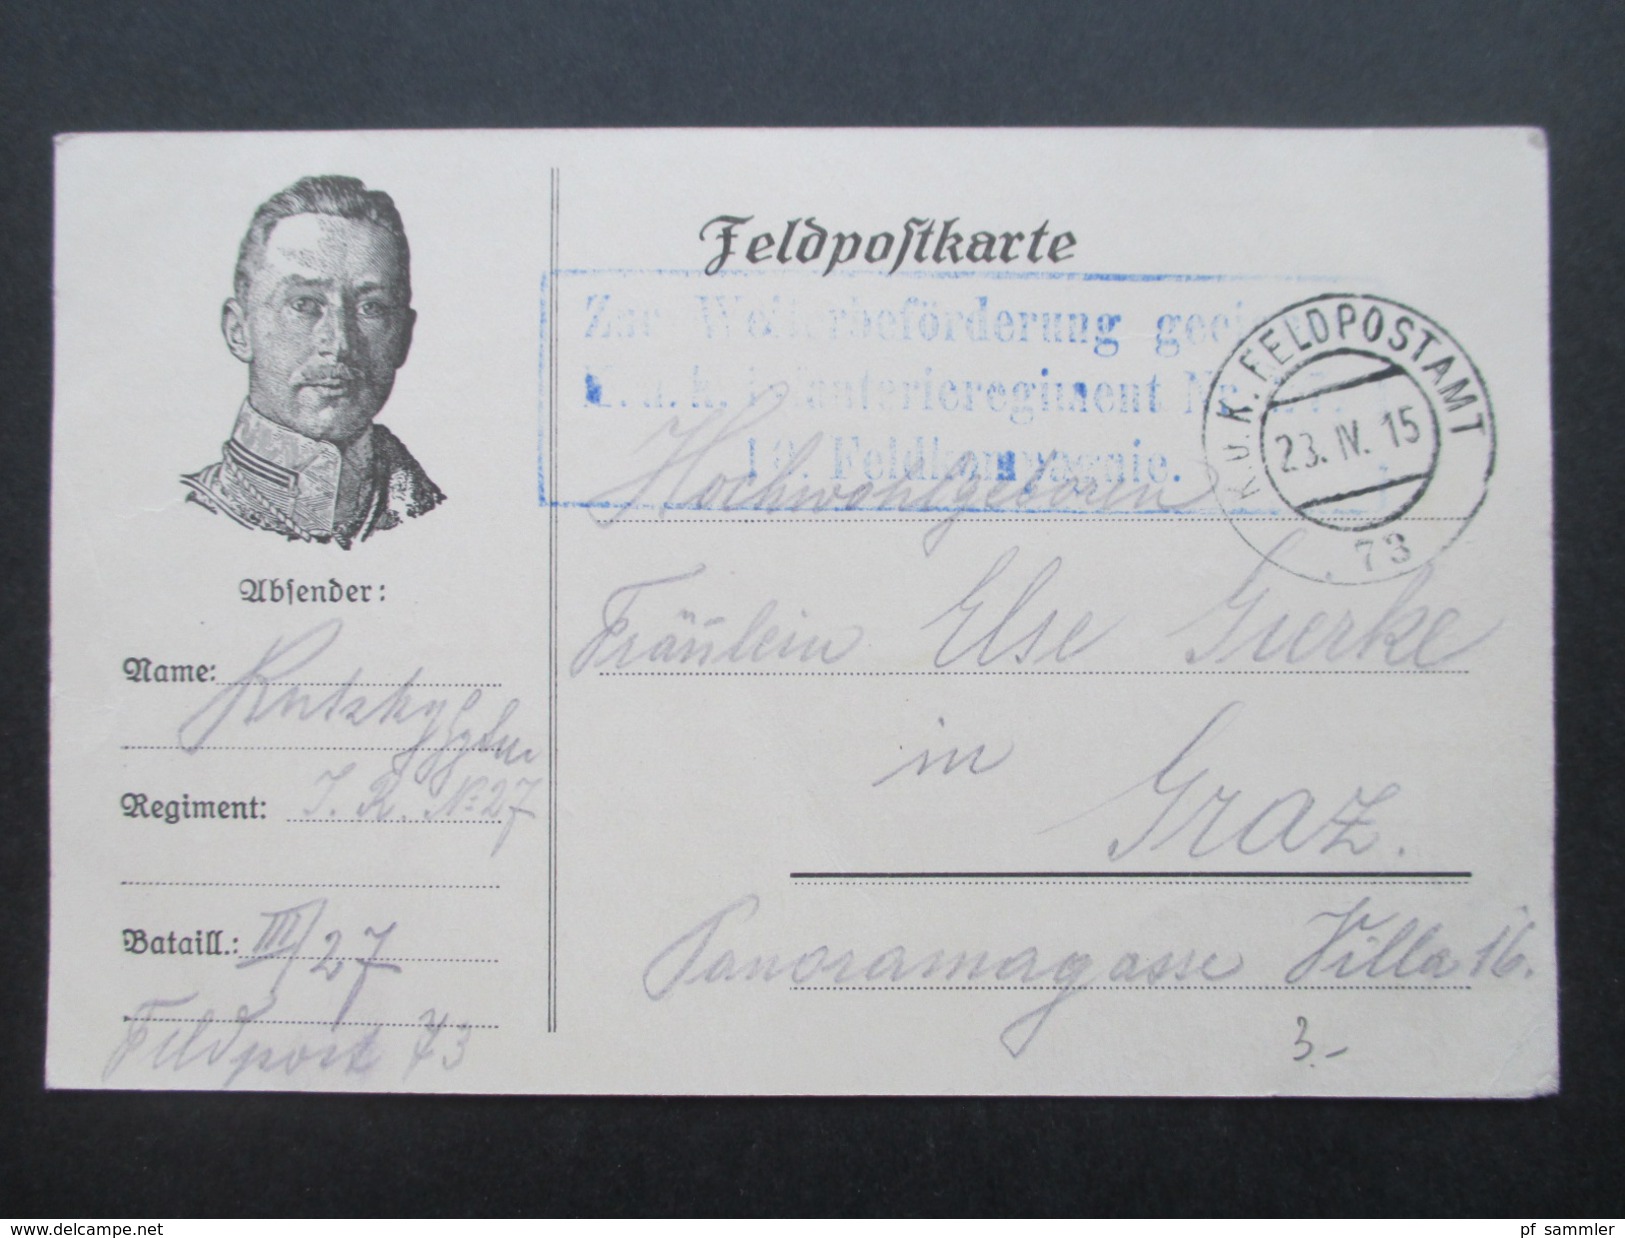 Feldpostkarte
Zur Weiterbeförderung
K. u. k. Infanterieregiment Nr.
10. Feldkompagnie.
K.u.K. FELDPOSTAMT
23. IV. 15
73
Hochwohlgeboren
Fräulein Else Gierke
in
Graz.
Panoramagasse Villa 16.
3.-
Absender:
Name: Rutzky
Regiment: I. R. No 27
Bataill.: III/27
Feldpost 73
www.delcampe.net
pf_sammler